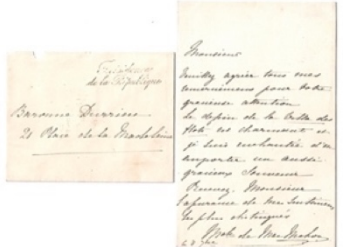 Présidence
de la République
Baronne Durrieu
21 Place de la Madeleine
Monsieur
Veuillez agréer tous mes
remerciements pour votre
gracieuse attention
Le dessin de la
est charmant et
je suis enchantée d'en
emporter un aussi
gracieux Souvenir
Recevez Monsieur
l'assurance de mes sentiments
les plus distingués
de Mac Mahon